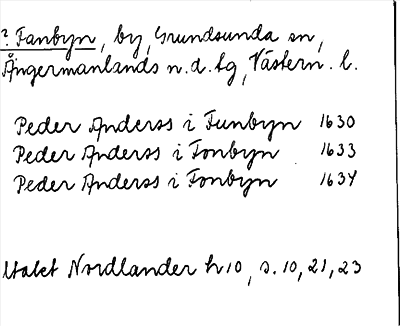 ? Fanbyn, by, Grundsunda sn,
Ångermanlands n. d. tg, Västern. l.
Peder Anderss i Funbyn 1630
Peder Anderss i Fonbyn 1633
Peder Anderss i Fonbyn 1634
Utdet Nordlander h 10, s. 10, 21, 23